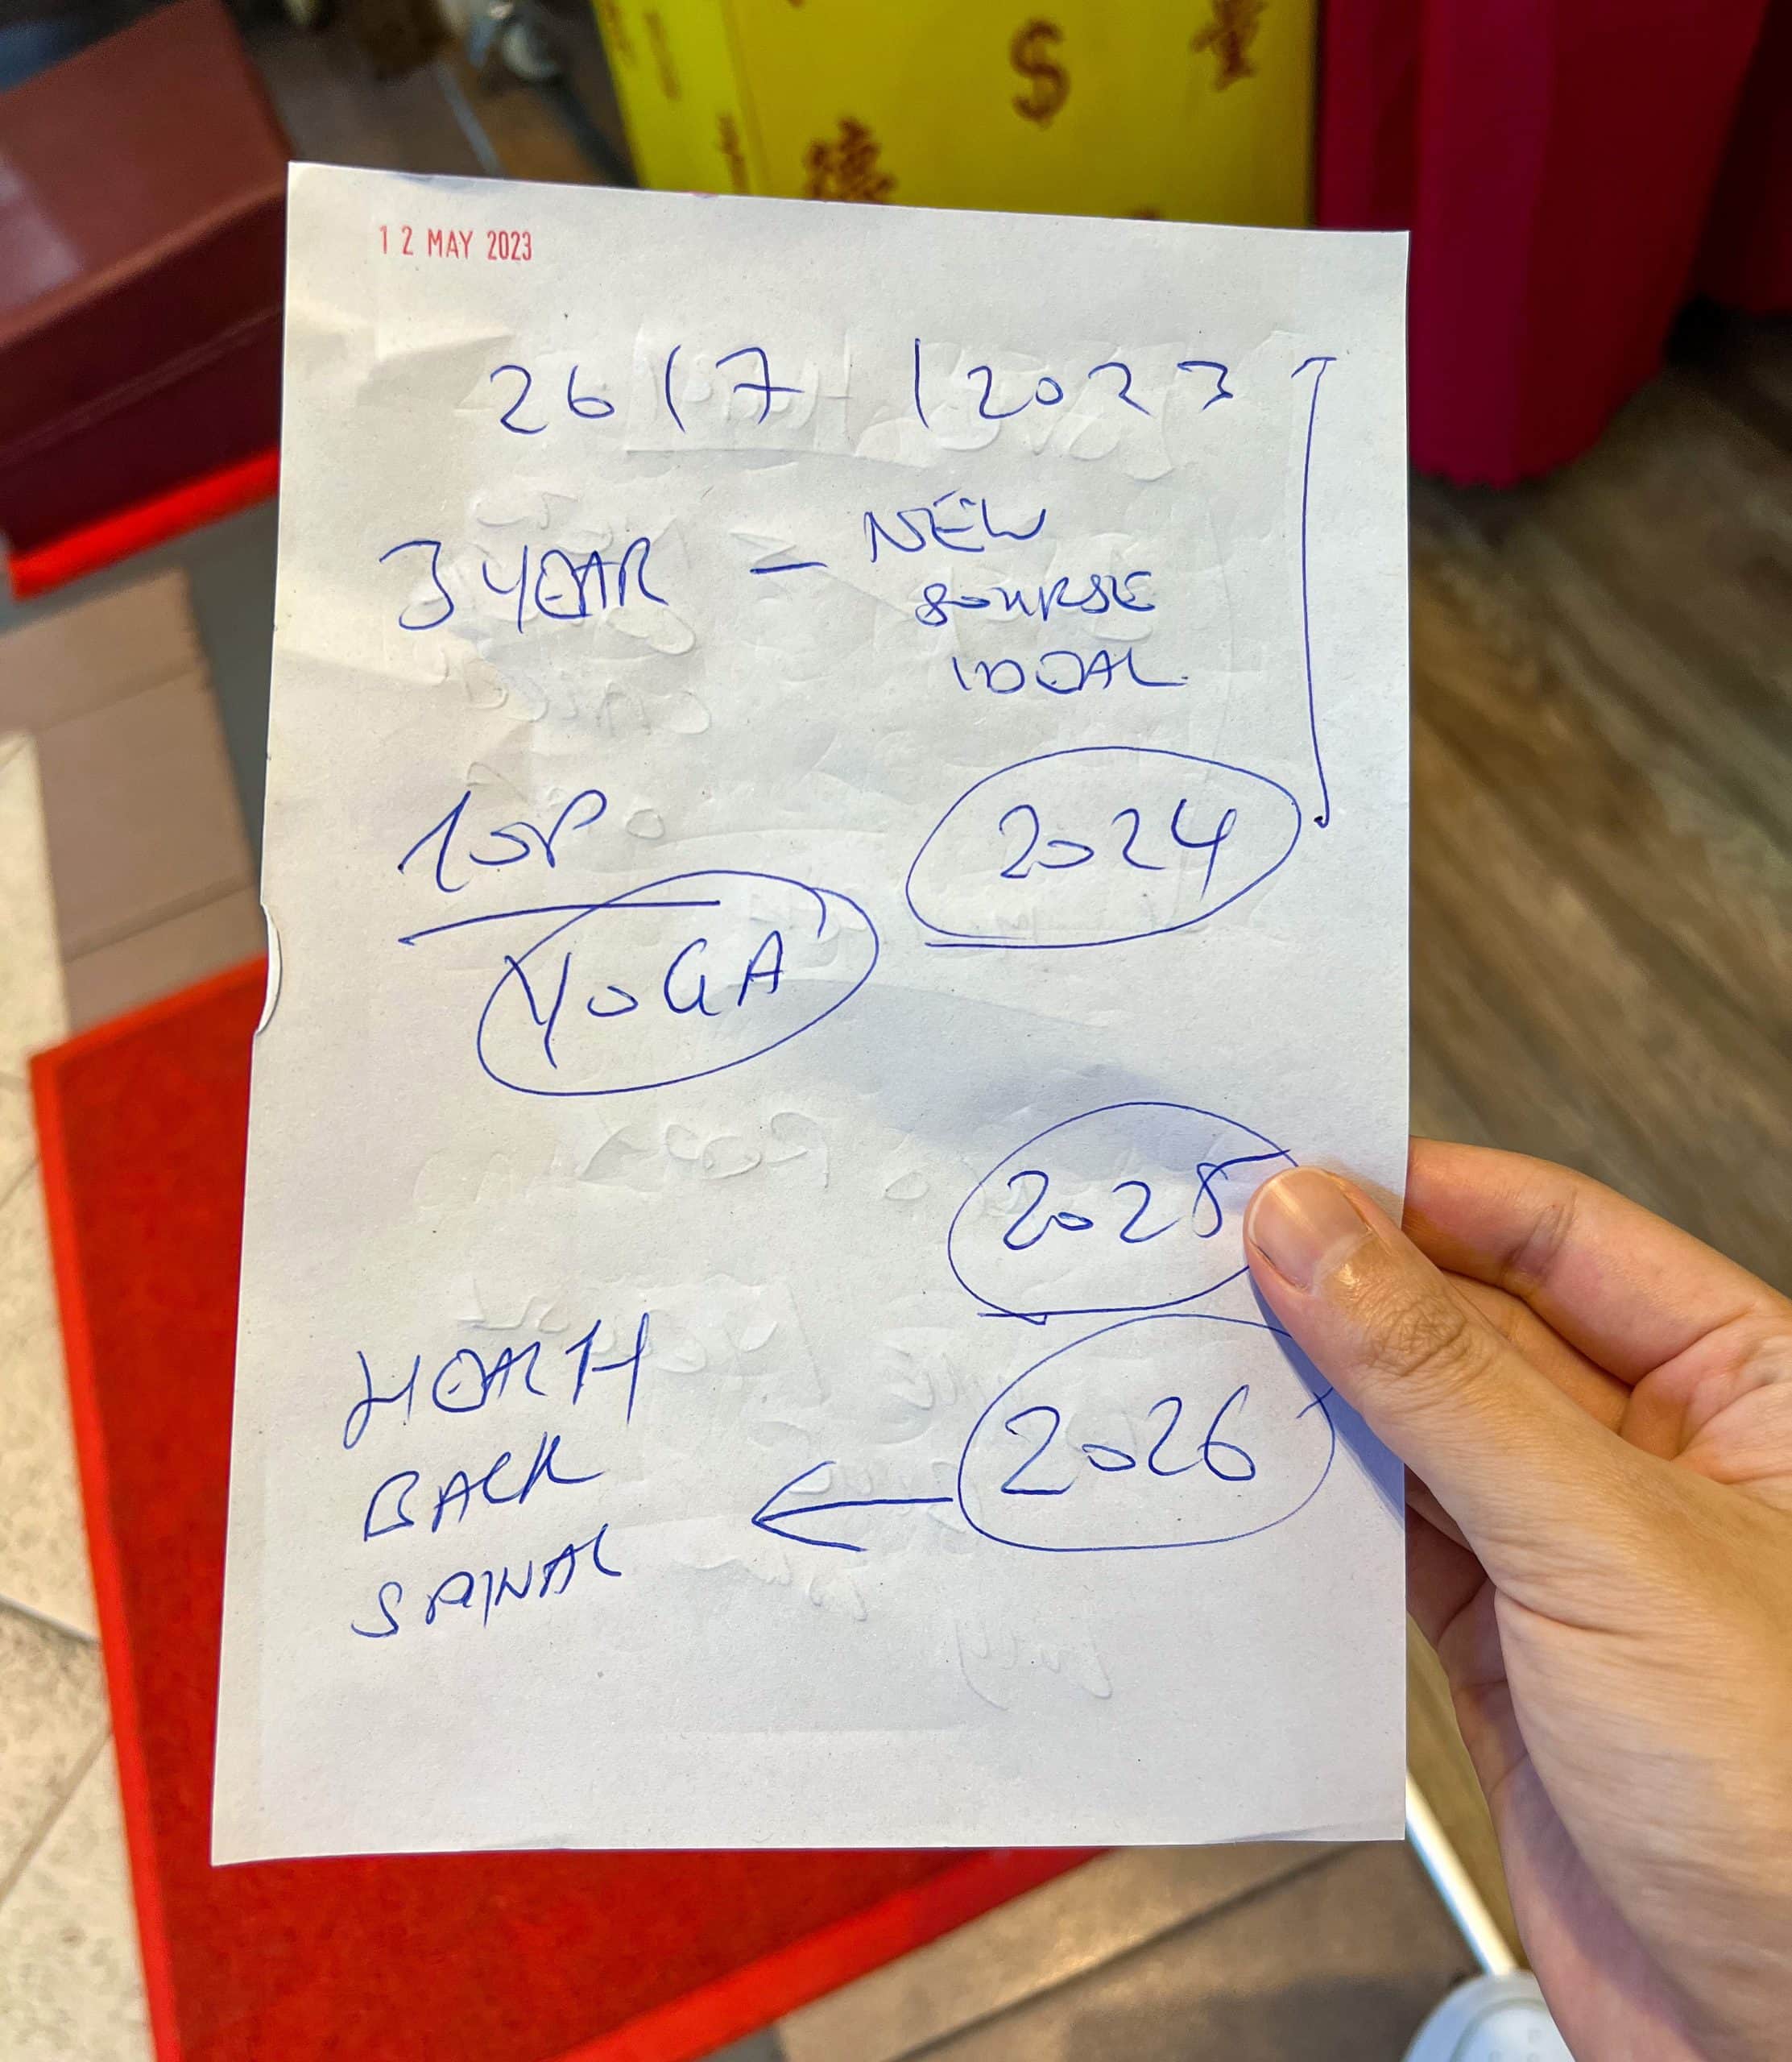 $
量
德
12 MAY 2023
26/7/2023
3 YEAR = NEW
SOURSE
IDEAL
TOP
2024
YOGA
2025
HEARTH
2026
BACK
SPINAL